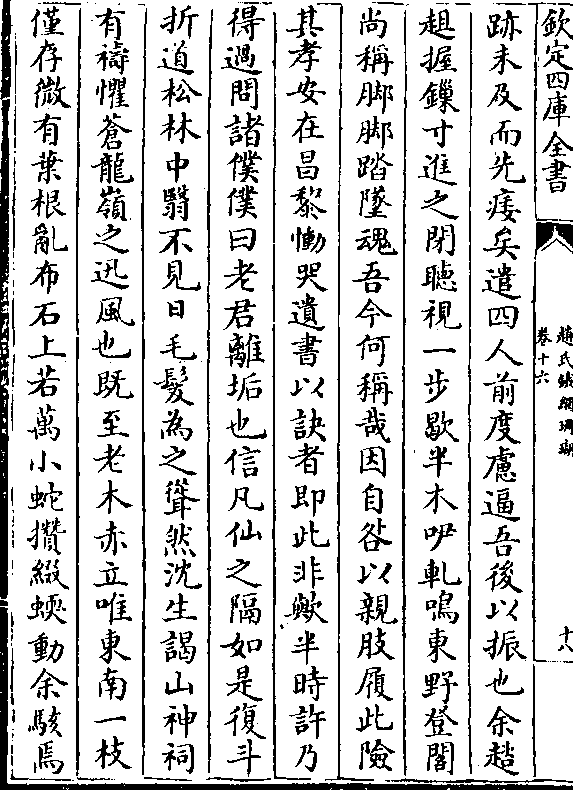 欽定四庫全書
趙氏鐵網珊瑚
卷十六
十八
跡未及而先痿矣遣四人前度慮逼吾後以振也余趦
趄握鏁寸進之閉聽視一步歇半木咿軋鳴東野登閣
尚稱脚脚踏墜魂吾今何稱哉因自咎以親肢履此險
其孝安在昌黎慟哭遺書以訣者即此非歟半時許乃
得過問諸僕僕曰老君離垢也信凡仙之隔如是復斗
折道松林中翳不見日毛髮為之聳然沈生謁山神祠
有禱懼蒼龍嶺之迅風也既至老木赤立唯東南一枝
僅存微有葉根亂布石上若萬小蛇攢綴蝡動余駭焉